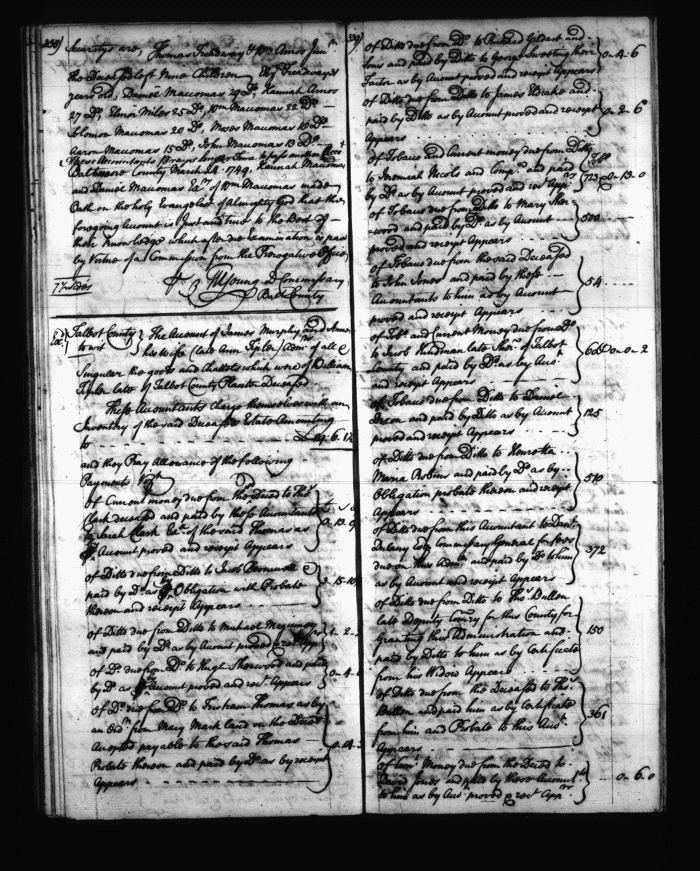 338)
Securitys are, Thomas Treadway & Wm. Amos Junr.
the Deceased left Nine Children Elizt. Treadway
years old, Daniel Maccomas 29 Do, Hannah Amos
27 Do, Elinor Miles 25 Do, Wm. Maccomas 22 Do
Solomon Maccomas 20 Do, Moses Maccomas 18 Do
Aaron Maccomas 15 Do, John Maccomas 13 Do
These Accountants prays longer time to pass another Acct.
Baltimore County March 24. 1749. Hannah Maccomas
and Daniel Maccomas Exrs. of Wm Maccomas made
Oath on the holy Evangelist of Almighty God that the
foregoing Account is Just and true to the Best of
their knowledge which after due Examination is past
by Virtue of a Commission from the Prerogative Office
WYoung D Commissary
Balt County
7 sides
Talbot County to wit } The Account of James Murphy and Anne
his Wife (late Ann Tipler) Admrs. of all &
Singular the goods and Chattels which were of William
Tipler late of Talbot County Planter Deceased
These Accountants charge themselves with an
Inventory of the said Deceased Estate Amounting
to 29. 6. 1
and they Pray Allowance of the following
Payments Vizt.
Of Current money due from the Deced to Thos.
Clark deceased and paid by these Accountants
to Sarah Clark Exx. of the said Thomas as
Account proved and receipt Appears } 0. 13. 9
of Ditto due from Ditto to Jacob
paid by Do as Obligation with Probate
thereon and receipt Appears } 15. 10
of Ditto due from Ditto to Michael
and paid by Do as by Account proved 1. 2.
of Do due from Do to Hugh Sherwood and paid
by Do as Account proved and rect. Appears } 0. 4.
of Do due from Do to Tristram Thomas as by
an Ordr. from Mary Markland on the Deced
Accepted payable to the said Thomas
Probate thereon and paid by Do as by receipt
Appears
339)
of Ditto due from Do to Richard Gildart and
Sons and paid by Ditto to George
Factor as by Account proved and receipt Appears } 0. 4. 6
of Ditto due from Ditto to James and
paid by Ditto as by Account proved and receipt
Appears } 0. 2. 6
of Tobacco and Current money due from Ditto
to Jeremiah Nicols and Compa. and paid
by Do as by Account proved and rect. Apprs. } 723. 0. 13. 0
of Tobacco due from Ditto to Mary Sher
wood and paid by Do as by Account
proved and receipt Appears } 500
of Tobacco due from the said Deceased
to John Jones and paid by these
Accountants to him as by Account
proved and receipt Appears } 54
of Tobo. and Current Money due from Do
to Jacob Hindman late Sherf. of Talbot
County, and paid by Do as by Acct.
and receipt Appears } 606 0. 0. 2
of Tobacco due from Ditto to Daniel
and paid by Ditto as by Account
proved and receipt Appears } 125
of Ditto due from Ditto to Henrietta
Maria Robins and paid by Do as by
Obligation probate thereon and receipt
Appears } 510
of Ditto due from this Accountant to Danl.
Dulany Esq. Commissary General for Fees
due on this Admn. and paid by Do to him
as by Account and receipt Appears } 372
of Ditto due from Ditto to Thos. Bullen
late Deputy Comry for this County for
Granting this Administration and
paid by Ditto to him as by Certificate
from his Widow Appears } 150
of Ditto due from the Deceased to Thos.
Bullen and paid him as by Certificate
from him and Probate to this Acct.
Appears } 361
of Curr. Money due from the Deced to
David Jones and paid by these Accountts.
to him as by Acct. proved & rect. Apprs. } 0. 6. 0